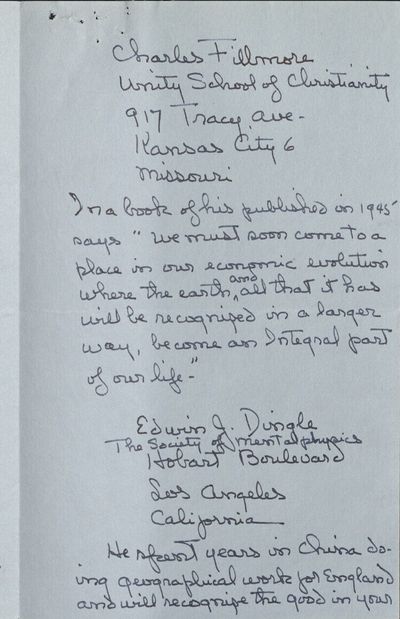 Charles Fillmore
Unity School of Christianity
917 Tracy Ave-
Kansas City 6
Missouri
In a book of his published in 1945
says "We must soon come to a
place in our economic evolution
where the earth, and all that it has
will be recognized in a larger
way, become an Integral part
of our life-"
Edwin J. Dingle
The Society of Mentalphysics
Hobart Boulevard
Los Angeles
California
He spent years in China do-
ing geographical work for England
and will recognize the good in your